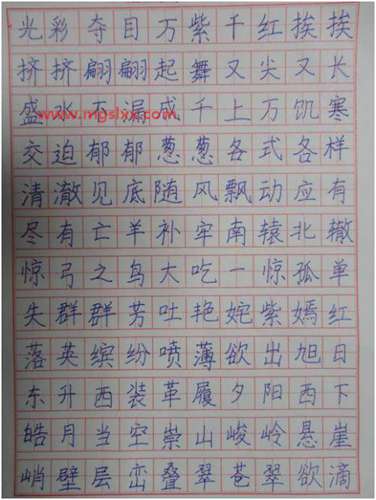 光彩夺目万紫千红挨挨
挤挤翩翩起舞又尖又长
盛水不漏成千上万饥寒
www.mgslxx.com
交迫郁郁葱葱各式各样
清澈见底随风飘动应有
尽有亡羊补牢南辕北辙
惊弓之鸟大吃一惊孤单
失群群芳吐艳姹紫嫣红
落英缤纷喷薄欲出旭日
东升西装革履夕阳西下
皓月当空崇山峻岭悬崖
峭壁层峦叠翠苍翠欲滴